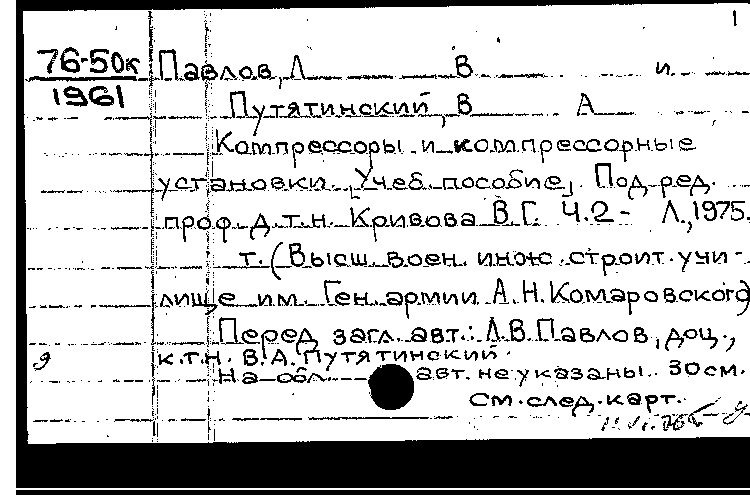 1
76-50к Павлов, Л В и
1961
Путятинский, В А
Компрессоры и компрессорные
установки. [Учеб. пособие]. Под ред.
проф. д.т.н. Кривова В.Г. Ч.2- Л., 1975.
т. (Высш. воен. инж. строит. учи-
лище им. Ген. армии А.Н. Комаровского)
Перед загл. авт.: Л.В. Павлов, доц.,
к.т.н. В.А. Путятинский.
На обл. авт. не указаны. 30 см.
См. след. карт.